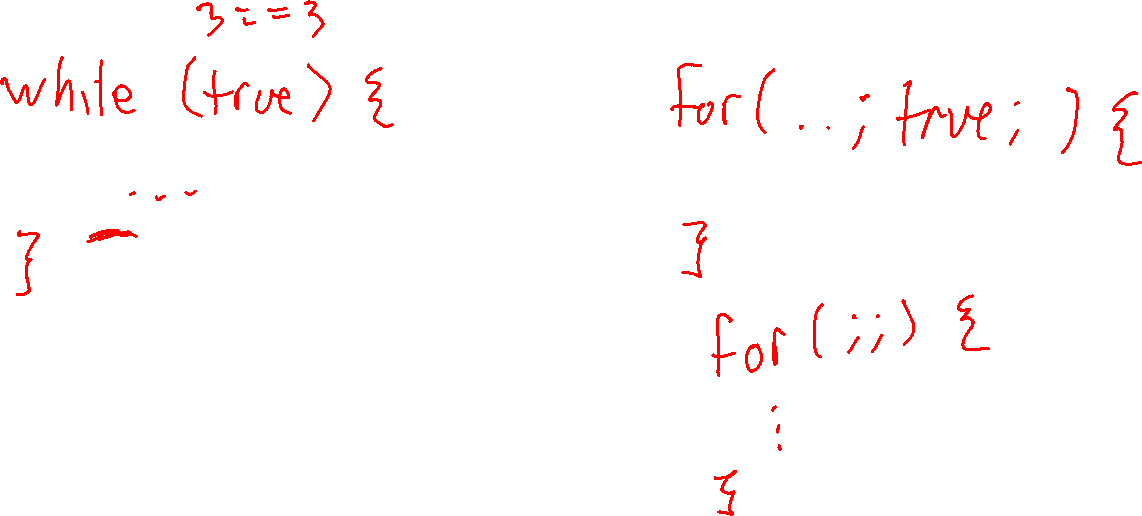 3 == 3
while (true) {
...
}
for(..; true; ) {
}
for(;;) {
⋮
}